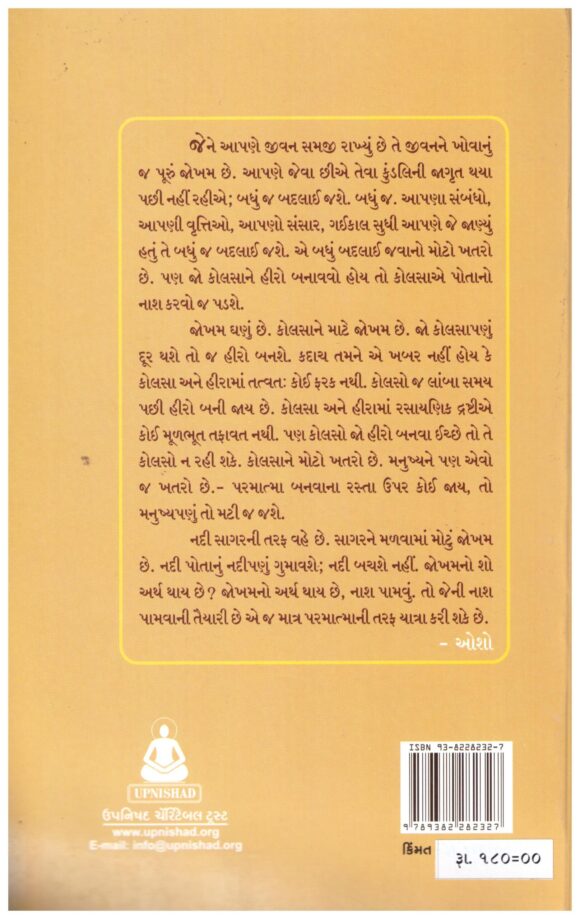 જેને આપણે જીવન સમજી રાખ્યું છે તે જીવનને ખોવાનું
જ પૂરું જોખમ છે. આપણે જેવા છીએ તેવા કુંડલિની જાગૃત થયા
પછી નહીં રહીએ; બધું જ બદલાઈ જશે. બધું જ. આપણા સંબંધો,
આપણી વૃત્તિઓ, આપણો સંસાર, ગઈકાલ સુધી આપણે જે જાણ્યું
હતું તે બધું જ બદલાઈ જશે. એ બધું બદલાઈ જવાનો મોટો ખતરો
છે. પણ જો કોલસાને હીરો બનાવવો હોય તો કોલસાએ પોતાનો
નાશ કરવો જ પડશે.
જોખમ ઘણું છે. કોલસાને માટે જોખમ છે. જો કોલસાપણું
દૂર થશે તો જ હીરો બનશે. કદાચ તમને એ ખબર નહીં હોય કે
કોલસા અને હીરામાં તત્વતઃ કોઈ ફરક નથી. કોલસો જ લાંબા સમય
પછી હીરો બની જાય છે. કોલસા અને હીરામાં રસાયણિક દ્રષ્ટીએ
કોઈ મૂળભૂત તફાવત નથી. પણ કોલસો જો હીરો બનવા ઈચ્છે તો તે
કોલસો ન રહી શકે. કોલસાને મોટો ખતરો છે. મનુષ્યને પણ એવો
જ ખતરો છે.– પરમાત્મા બનવાના રસ્તા ઉપર કોઈ જાય, તો
મનુષ્યપણું તો મટી જ જશે.
નદી સાગરની તરફ વહે છે. સાગરને મળવામાં મોટું જોખમ
છે. નદી પોતાનું નદીપણું ગુમાવશે; નદી બચશે નહીં. જોખમનો શો
અર્થ થાય છે? જોખમનો અર્થ થાય છે, નાશ પામવું. તો જેની નાશ
પામવાની તૈયારી છે એ જ માત્ર પરમાત્માની તરફ યાત્રા કરી શકે છે.
– ઓશો
UPNISHAD
ઉપનિષદ ચેરિટેબલ ટ્રસ્ટ
www.upnishad.org
E-mail: info@upnishad.org
ISBN 93-8228232-7
9 789382 282327
કિંમત રૂા. ૧૮૦=૦૦